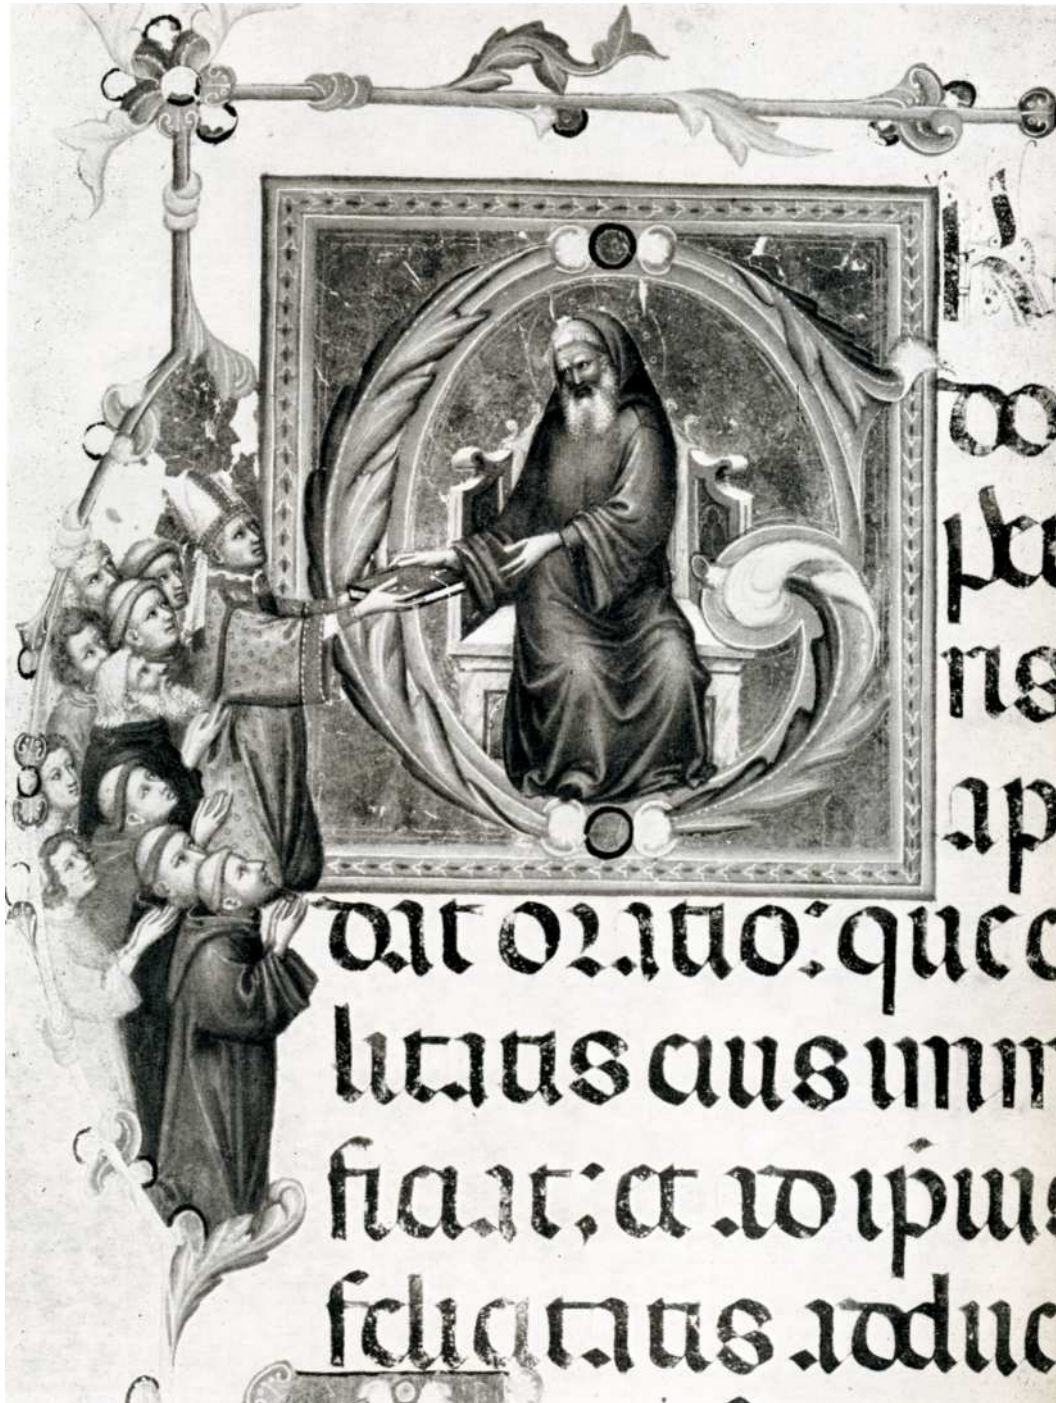 do
pce
ris
ap
dat oratio: que c
litatis eius imm
ficat; et ad ip̄ius
felicitatis adduc